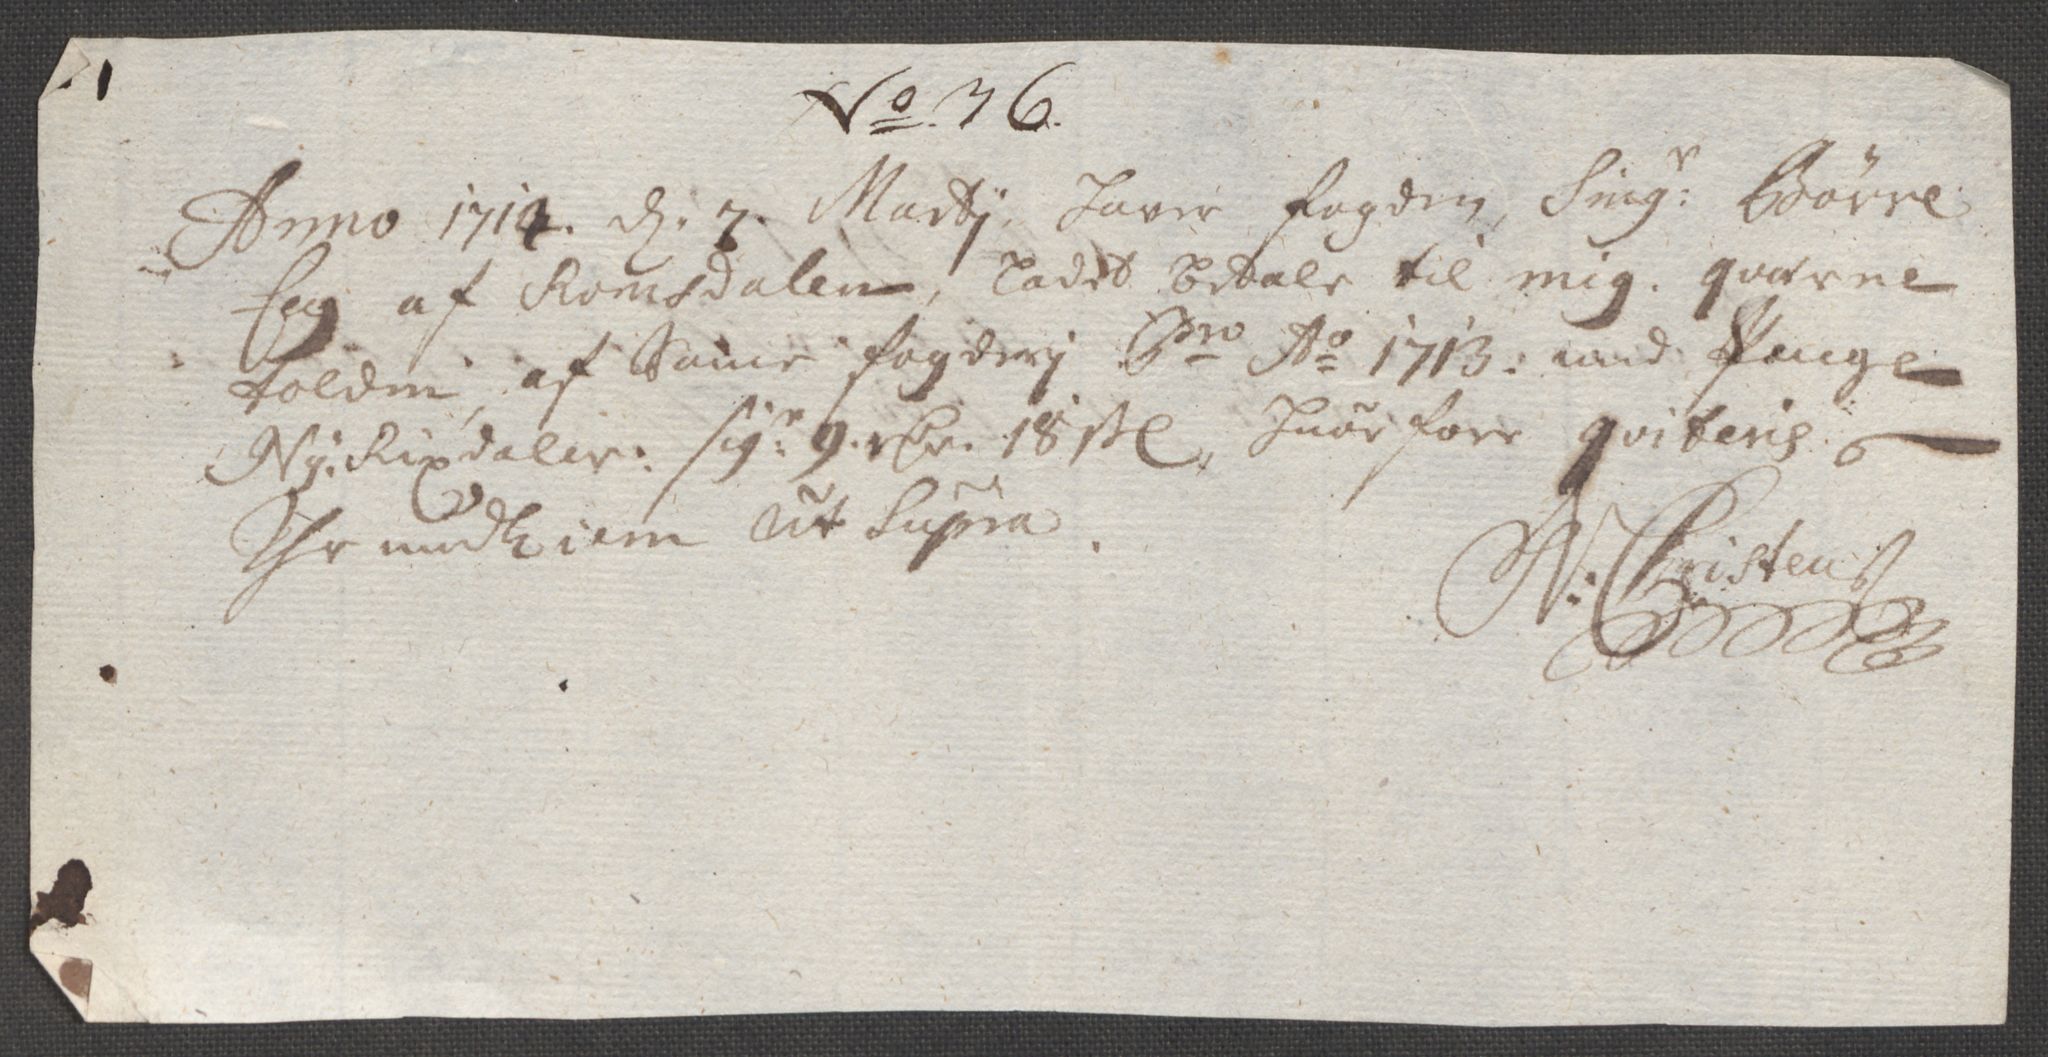 No. 36.
Anno 1714. d. 7. Martij, haver fogden, Singr: Börre
Eeg af Romsdalen, ladet betale til mig. qværne
tolden, af Same fogderj Pro Ao 1713: med Penge
Nj: Rixdaler: siger 9. rdr. 18 s, huorforr qviteris.
Thrundhiem Ut Supra.
N: Christens